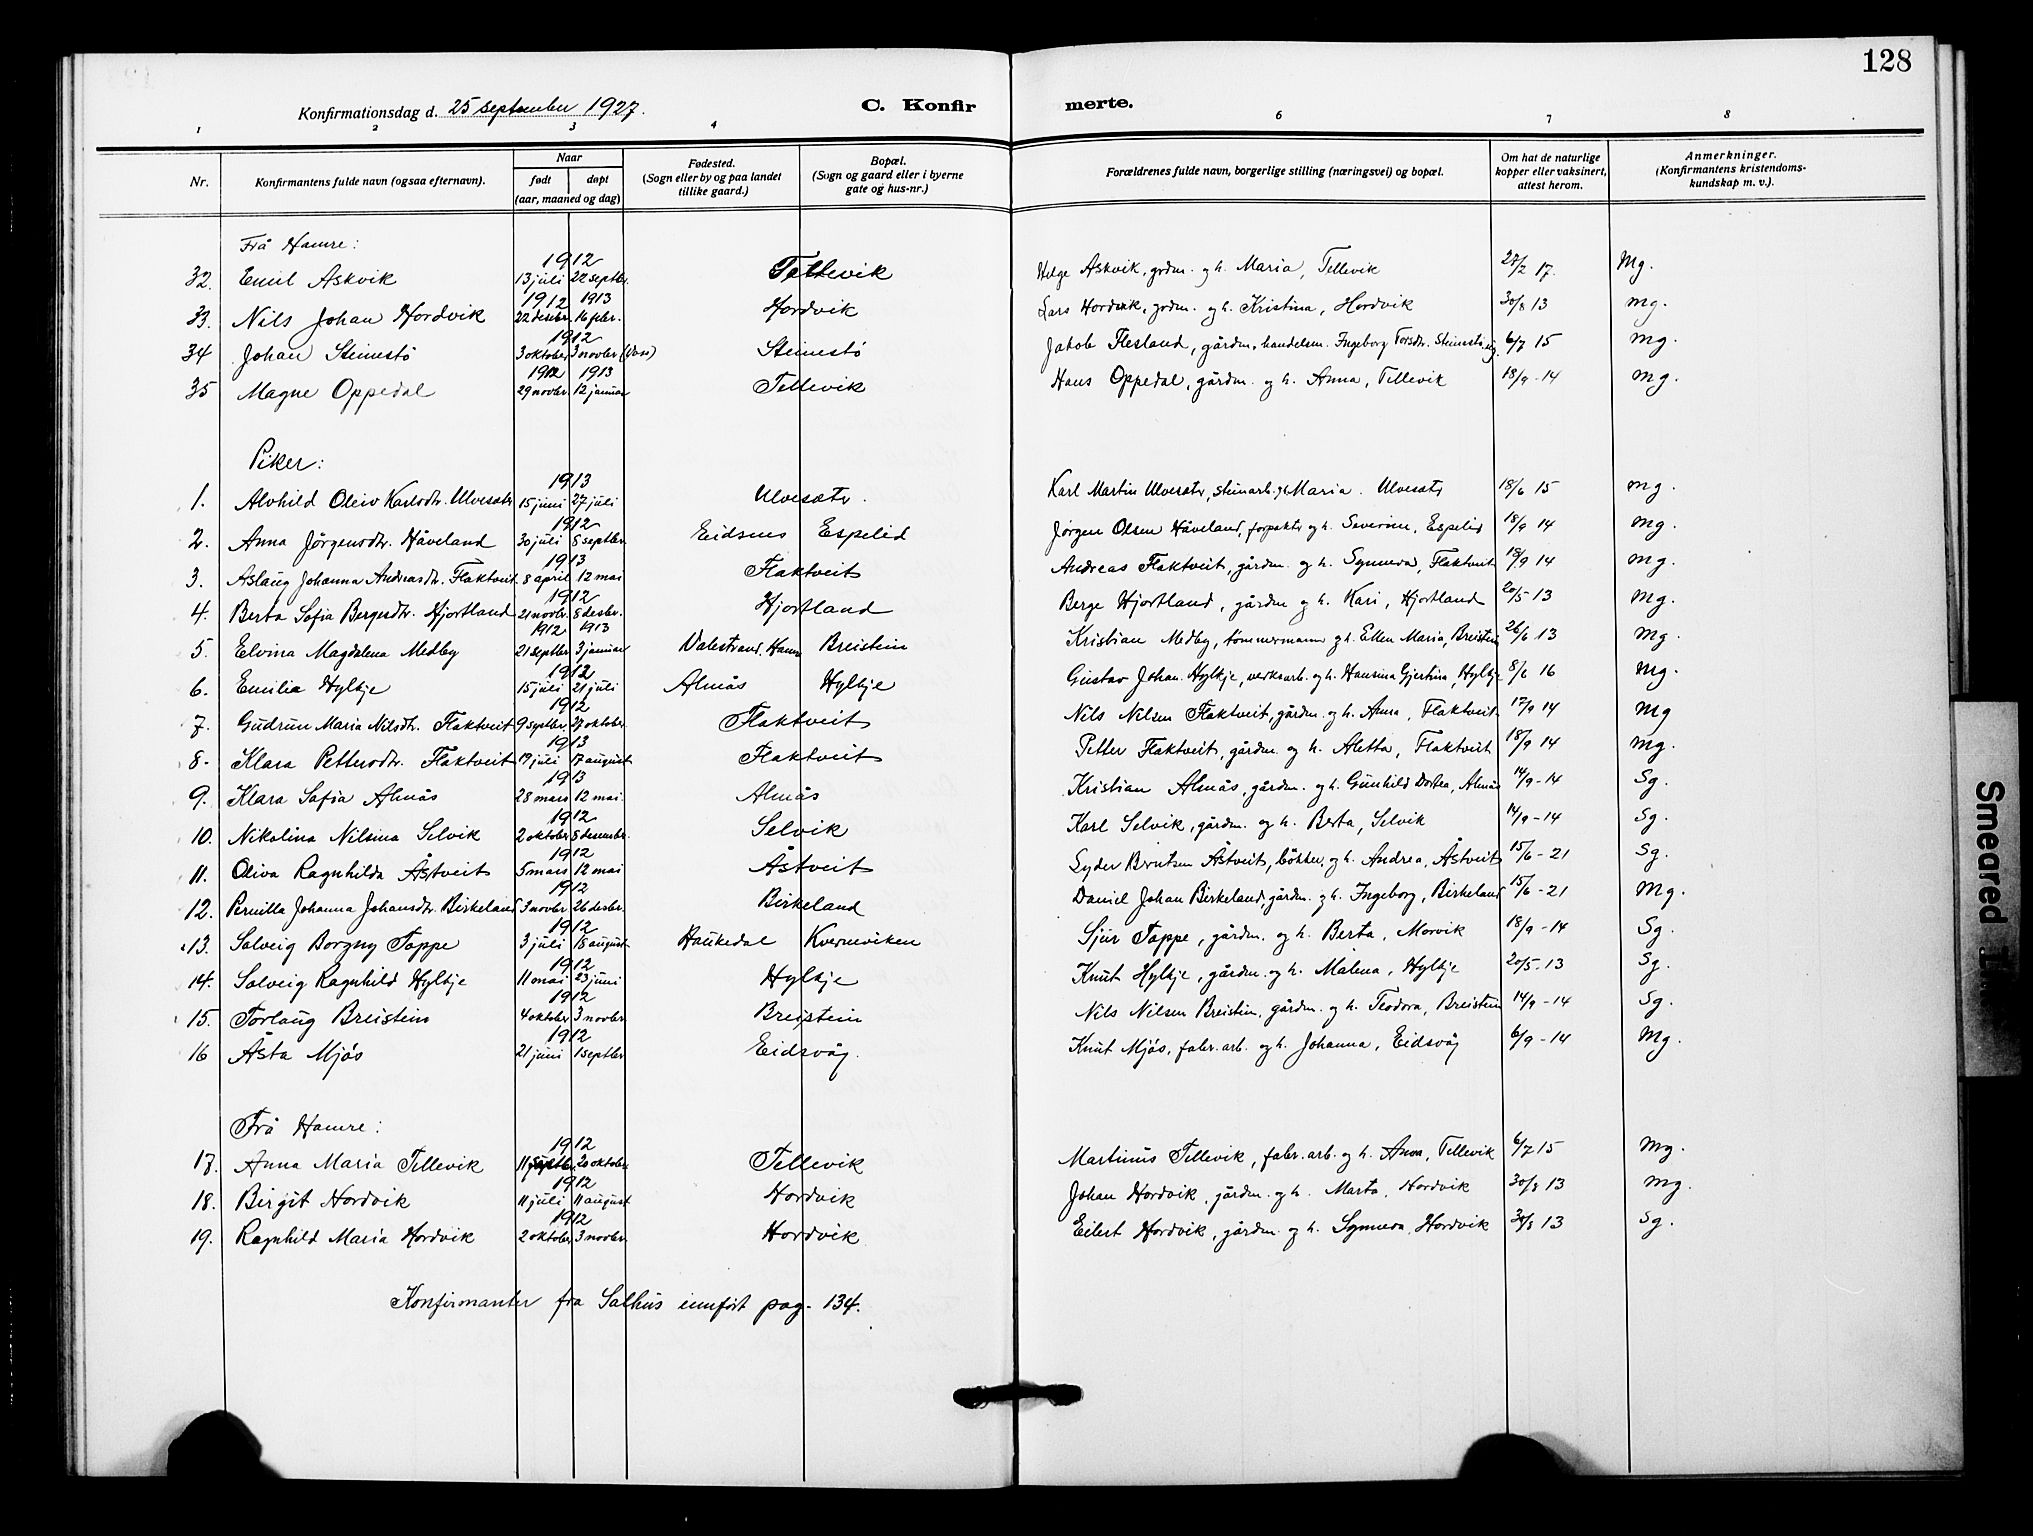 128
Konfirmationsdag d. 25 september 1927. C. Konfir merte.
1 2 3 4 6 7 8
Nr. Konfirmantens fulde navn (ogsaa efternavn). Naar født døpt (aar, maaned og dag) Fødested. (Sogn eller by og paa landet tillike gaard.) Bopæl. (Sogn og gaard eller i byerne gate og hus-nr.) Forældrenes fulde navn, borgerlige stilling (næringsvei) og bopæl. Om hat de naturlige kopper eller vaksinert, attest herom. Anmerkninger. (Konfirmantens kristendoms-kundskap m. v.).
Frå Hamre:
1912
32. Emil Askvik 13 juli 22 septbr. Tellevik Helge Askvik, grdm. og h. Maria, Tellevik 17. Mg.
1912 1913
33. Nils Johan Hordvik 22 desbr. 16 febr. Hordvik Lars Hordvik, grdm. og h. Kristina, Hordvik 30/8 13 Mg.
1912
34 Johan Steinestø 3 oktober 3 novbr (Voss) Steinestø Jakob Flesland, gårdm, handelsm. Ingeborg Torsdtr. Steinestø, ug. 6/7 15 Mg.
1912 1913
35 Magne Oppedal 29 novbr. 12 januar Tellevik Hans Oppedal, gårdm. og h. Anna, Tellevik 18/9 - 14 Mg.
Piker:
1913
1. Alvhild Oleiv Karlsdtr. Ulvesætr 15 juni 27 juli Ulvesætr. Karl Martin Ulvesætr, steinarb. og h. Maria. Ulvesætr 18/6 15 Mg.
1912
2. Anna Jörgensdtr. Håveland 30 juli 8 septbr. Eidsnes Espelid Jörgen Olsen Håveland, forpakter og h. Severine, Espelid 18/9 14 Mg.
1913
3. Aslaug Johanna Andreasdtr. Flaktveit 8 april 12 mai Flaktveit Andreas Flaktveit, gårdm. og h. Synneva, Flaktveit 18/9 14 Mg.
1912
4. Berta Sofia Bergesdtr. Hjortland 21 novbr. 8 desbr. Hjortland Berge Hjortland, gårdm og h. Kari, Hjortland 20/5 13 Mg.
1912 1913
5. Elvina Magdalena Medby 21 septbr 3 januar Valestrand. Hamre Breistein Kristian Medby, tömmermann og h. Ellen Maria, Breistein 26/6 13 Mg.
1912
6. Emilia Hylkje 15 juli 21 juli Almås Hylkje Gustav Johan. Hylkje, verksarb. og h. Hansina Gjertina, Hylkje 8/6 16 Mg.
1912
7. Gudrun Maria Nilsdtr. Flaktveit 9 septbr. 27 oktobr. Flaktveit Nils Nilsen Flaktveit, gårdm. og h. Anna, Flaktveit 17/9 14 Mg
1913
8. Klara Pettersdtr. Flaktveit 17 juli 17 august Flaktveit Petter Flaktveit, gårdm. og h. Aletta, Flaktveit 18/9 14 Mg.
1913
9. Klara Sofia Almås 28 mars 12 mai. Almås Kristian Almås, gårdm. og h. Gunhild Dortea, Almås 14/9 - 14 Sg.
1912
10. Nikolina Nilsina Selvik 2 oktober 8 desembr. Selvik Karl Selvik, gårdm. og h. Berta, Selvik 14/9 - 14 Sg.
1912
11. Oliva Ragnhilda Åstveit 5 mars 12 mai Åstveit Lyder Åstveit, bökker, og h. Andrea, Åstveit 15/6 - 21 Sg.
1912
12. Pernilla Johanna Johansdtr. Birkeland 3 novbr 26 desbr. Birkeland Daniel Johan Birkeland, gårdm. og h. Ingeborg, Birkeland 15/6 - 21 Mg.
1912
13. Solveig Borgny Toppe 3 juli 18 august Haukedal Kverneviken Sjur Toppe, gårdm. og h. Berta, Morvik 18/9 - 14 Sg.
1912
14. Solveig Ragnhild Hylkje 11 mai 23 juni Hylkje Knut Hylkje, gårdm. og h. Malena, Hylkje 20/5 - 13 Sg.
1912
15. Torlaug Breistein 4 oktober 3 novbr. Breistein Nils Nilsen Breistein, gårdm. og h. Teodora, Breistein 14/9 - 14 Sg.
1912
16 Åsta Mjös 21 juni 1 septbr Eidsvåg. Knut Mjös, fabr. arb. og h. Johanna, Eidsvåg 6/9 - 14 Mg.
Frå Hamre:
1912
17. Anna Maria Tellevik 11 20 oktober Tellevik Martinus Tellevik, fabr. arb. og h. Anna, Tellevik 6/7 15 Mg.
1912
18. Birgit Hordvik 11 juli 11 august Hordvik Johan Hordvik, gårdm. og h. Marta, Hordvik 30/8 13 Mg.
1912
19. Ragnhild Maria Hordvik 2 oktober 3 novbr. Hordvik Eilert Hordvik, gårdm. og h. Synneva, Hordvik 30/8 13 Sg.
Konfirmanter fra Salhus innfört pag. 134.
Smeared